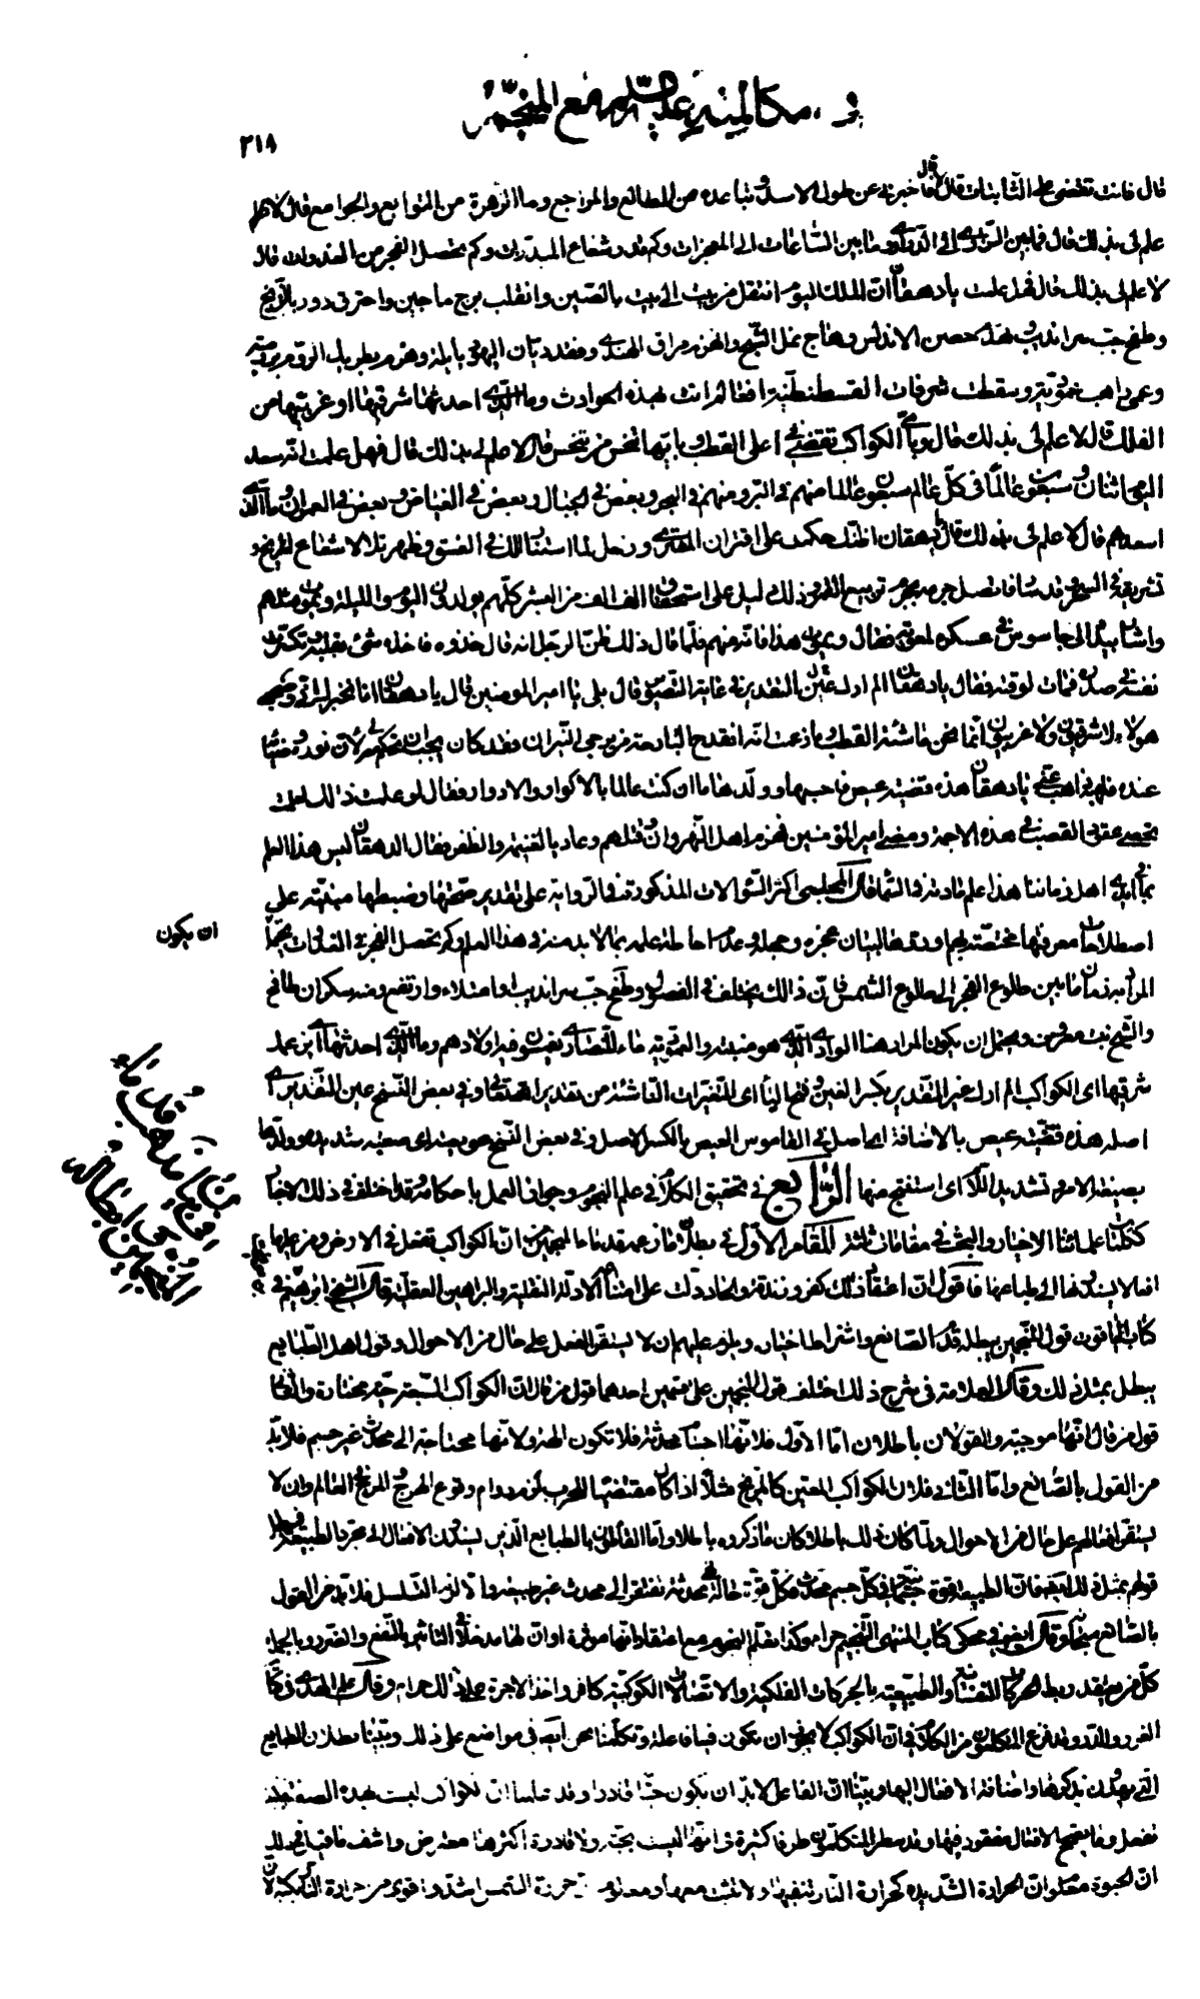 في مكالمته عليه السلام مع المنجم
٢١٨
قال فانت تقضي على الثابتات قال لا قال فاخبرني عن طول الاسد وتباعده من المطالع والمراجع وما الزهرة من التوابع والجوامع قال لا
علم لى بذلك قال فما بين السراري الى الدراري وما بين الساعات الى المعجزات وكم قدر شعاع المبدرات وكم تحصل الفجر من الغدوات قال
لا علم لى بذلك قال فهل علمت يا دهقان ان الملك اليوم انتقل من بيت الى بيت بالصين وانقلب برج ماجين واحترق دور بالزنج
وطفح جب سرانديب وتهدم حصن الاندلس وهاج نمل الشيح وانهزم مراق الهندي وفقد ديان اليهود بايلة وهزم بطريق الروم برومية
وعمى راهب عمورية وسقطت شرفات القسطنطنية افعالم انت بهذه الحوادث وما الذي احدثها شرقيها او غربيها من
الفلك قال لا علم لى بذلك قال وباى الكواكب تقضى فى اعلى القطب وبايها تنحس من تنحس قال لا علم لى بذلك قال فهل علمت انه سعد
اليوم اثنان وسبعون عالما فى كل عالم سبعون عالما منهم فى البر ومنهم فى البحر وبعض فى الجبال وبعض فى الغياض وبعض فى العمران وما الذى
اسعدهم قال لا علم لى بذلك قال يا دهقان اظنك حكمت على اقتران المشترى وزحل لما استنارا لك فى الغسق وظهر تلالا شعاع المريخ و
تشريقه فى السحر وقد سار فاتصل جرمه بجرم تربيع القمر وذلك دليل على استحقاق الف الف من البشر كلهم يولدون اليوم والليلة ويموت مثلهم
واشار بيده الى جاسوس فى عسكره لمعوية فقال ويموت هذا فانه منهم فلما قال ذلك ظن الرجل انه قال خذوه فاخذه شئ بقلبه وتكسرت
نفسه فى صدره فمات لوقته فقال يا دهقان الم ارك عين التقدير فى غاية التصوير قال بلى يا امير المؤمنين قال يا دهقان انا مخبرك انى وصحبى
هؤلاء لا شرقيون ولا غربيون انما نحن ناشئة القطب وما زعمت انه انقدح البارحة من برجى النيران فقد كان يجب ان تحكم معه لى لان نوره وضياءه
عنده فلهبه ذاهب عنى يا دهقان هذه قضية عيص فاحسبها وولدها ان كنت عالما بالاكوار والادوار فقال لو علمت ذلك لعلمت
تحصى عقود القصب فى هذه الاجمة ومضى امير المؤمنين فهزم اهل النهروان وقتلهم وعاد بالغنيمة والظفر فقال الدهقان ليس هذا العلم
بما فى ايدى اهل زماننا هذا علم مادته من السماء قال المجلسى اكثر السؤالات المذكورة فى الرواية على تقدير صحتها وضبطها مبنية على
اصطلاحات معرفتها مختصة بهم اوردها لبيان عجزه وجهله وعدم احاطة علمه بما لا بد منه فى هذا العلم وكم تحصل الفجر فى الغدوات يحتمل
ان يكون
المراد زمان ما بين طلوع الفجر الى طلوع الشمس فان ذلك يختلف فى الفصول وطفح جب سرانديب امتلاء وارتفع ومنه سكران طافح
والشيح نبت معروف ويحتمل ان يكون المراد هنا الوادى الذى هو منبته والعمورية ماء للنصارى يغمسون فيه اولادهم وما الذى احدثها
شرقيها اى الكواكب الم ارك غير التقدير بكسر الغين وفتح الياء اى التغيرات الناشئة من تقديراته تعالى وفى بعض النسخ عين التقدير اى
اصله هذه قضية عيص بالاضافة اى اصل فى القاموس العيص بالكسر الاصل وفى بعض النسخ عويصة اى صعبة شديدة وولدها
بصيغة الامر وتشديد اللام اى استنتج منها الرابع فى تحقيق الكلام فى علم النجوم وجواز العمل باحكامه وقد اختلف فى ذلك
كلمات علمائنا الاخيار والبحث فى مقامات ثلثة المقام الاول فى بطلان ما زعمه قدماء المنجمين ان الكواكب تفعل فى الارض ومن عليها
افعالا يسندونها الى طباعها فاقول ان اعتقاد ذلك كفر وزندقة والحاد دلت على امتناعه الادلة النقلية والبراهين العقلية قال الشيخ ابراهيم فى
كتاب الياقوت قول المنجمين يبطله قدم الصانع واشتراط اختياره ويلزم عليهم ان لا يستقر الفعل على حال من الاحوال وقول اهل الطبايع
يبطل بمثل ذلك وقال العلامة فى شرح ذلك اختلف قول المنجمين على قسمين احدهما قول من قال ان الكواكب السبعة حية مختارة والثانى
قول من قال انها موجبة والقولان باطلان اما الاول فلانها اجسام محدثة فلا تكون الهة ولانها محتاجة الى محدث غير جسم فلا بد
من القول بالصانع واما الثانى فلان الكواكب المعين كالمريخ مثلا اذا كان مقتضيا للحرب لزم دوام وقوع الهرج والمرج فى العالم وان لا
يستقر افعالهم على حال من الاحوال ولما كان ذلك باطلا كان ما ذكروه باطلا واما القائلون بالطبايع الذين يسندون الافعال الى مجرد الطبيعة فيبطل
قولهم بمثل ذلك ايضا فان الطبيعة قوة جسمانية فى كل جسم محدث فكل قوة حالة فيه محدثة تفتقر الى محدث غير طبيعة والا لزم التسلسل فلا بد من القول
بالصانع سبحانه وقال ايضا فى محكى كتاب المنتهى التنجيم حرام وكذا تعلم النجوم مع اعتقاد انها مؤثرة او ان لها مدخلا فى التاثير بالنفع والضرر وبالجملة
كل من يعتقد ربط الحركات النفسانية والطبيعية بالحركات الفلكية والاتصالات الكوكبية كافر واخذ الاجرة على ذلك حرام وقال علم الهدى فى كتاب
الغرر والدرر وقد فرغ المتكلمون من الكلام فى ان الكواكب لا يجوز ان تكون فينا فاعلة وتكلمنا نحن ايضا فى مواضع على ذلك وبينا بطلان الطبايع
التى يهذون بذكرها واضافة الافعال اليها وبينا ان الفاعل لا بد ان يكون حيا قادرا وقد علمنا ان الكواكب ليست بهذه الصفة فكيف
تفعل وما يصحح الافعال مفقود فيها وقد سطر المتكلمون طرقا كثيرة فى انها ليست بحية ولا قادرة اكثرها معترض واشف ما قيل فى ذلك
ان الحيوة معلوم ان الحرارة الشديدة كحرارة النار تنفيها ولا تثبت معها ومعلوم ان حرارة الشمس اشد واقوى من حرارة النار بكثير لان